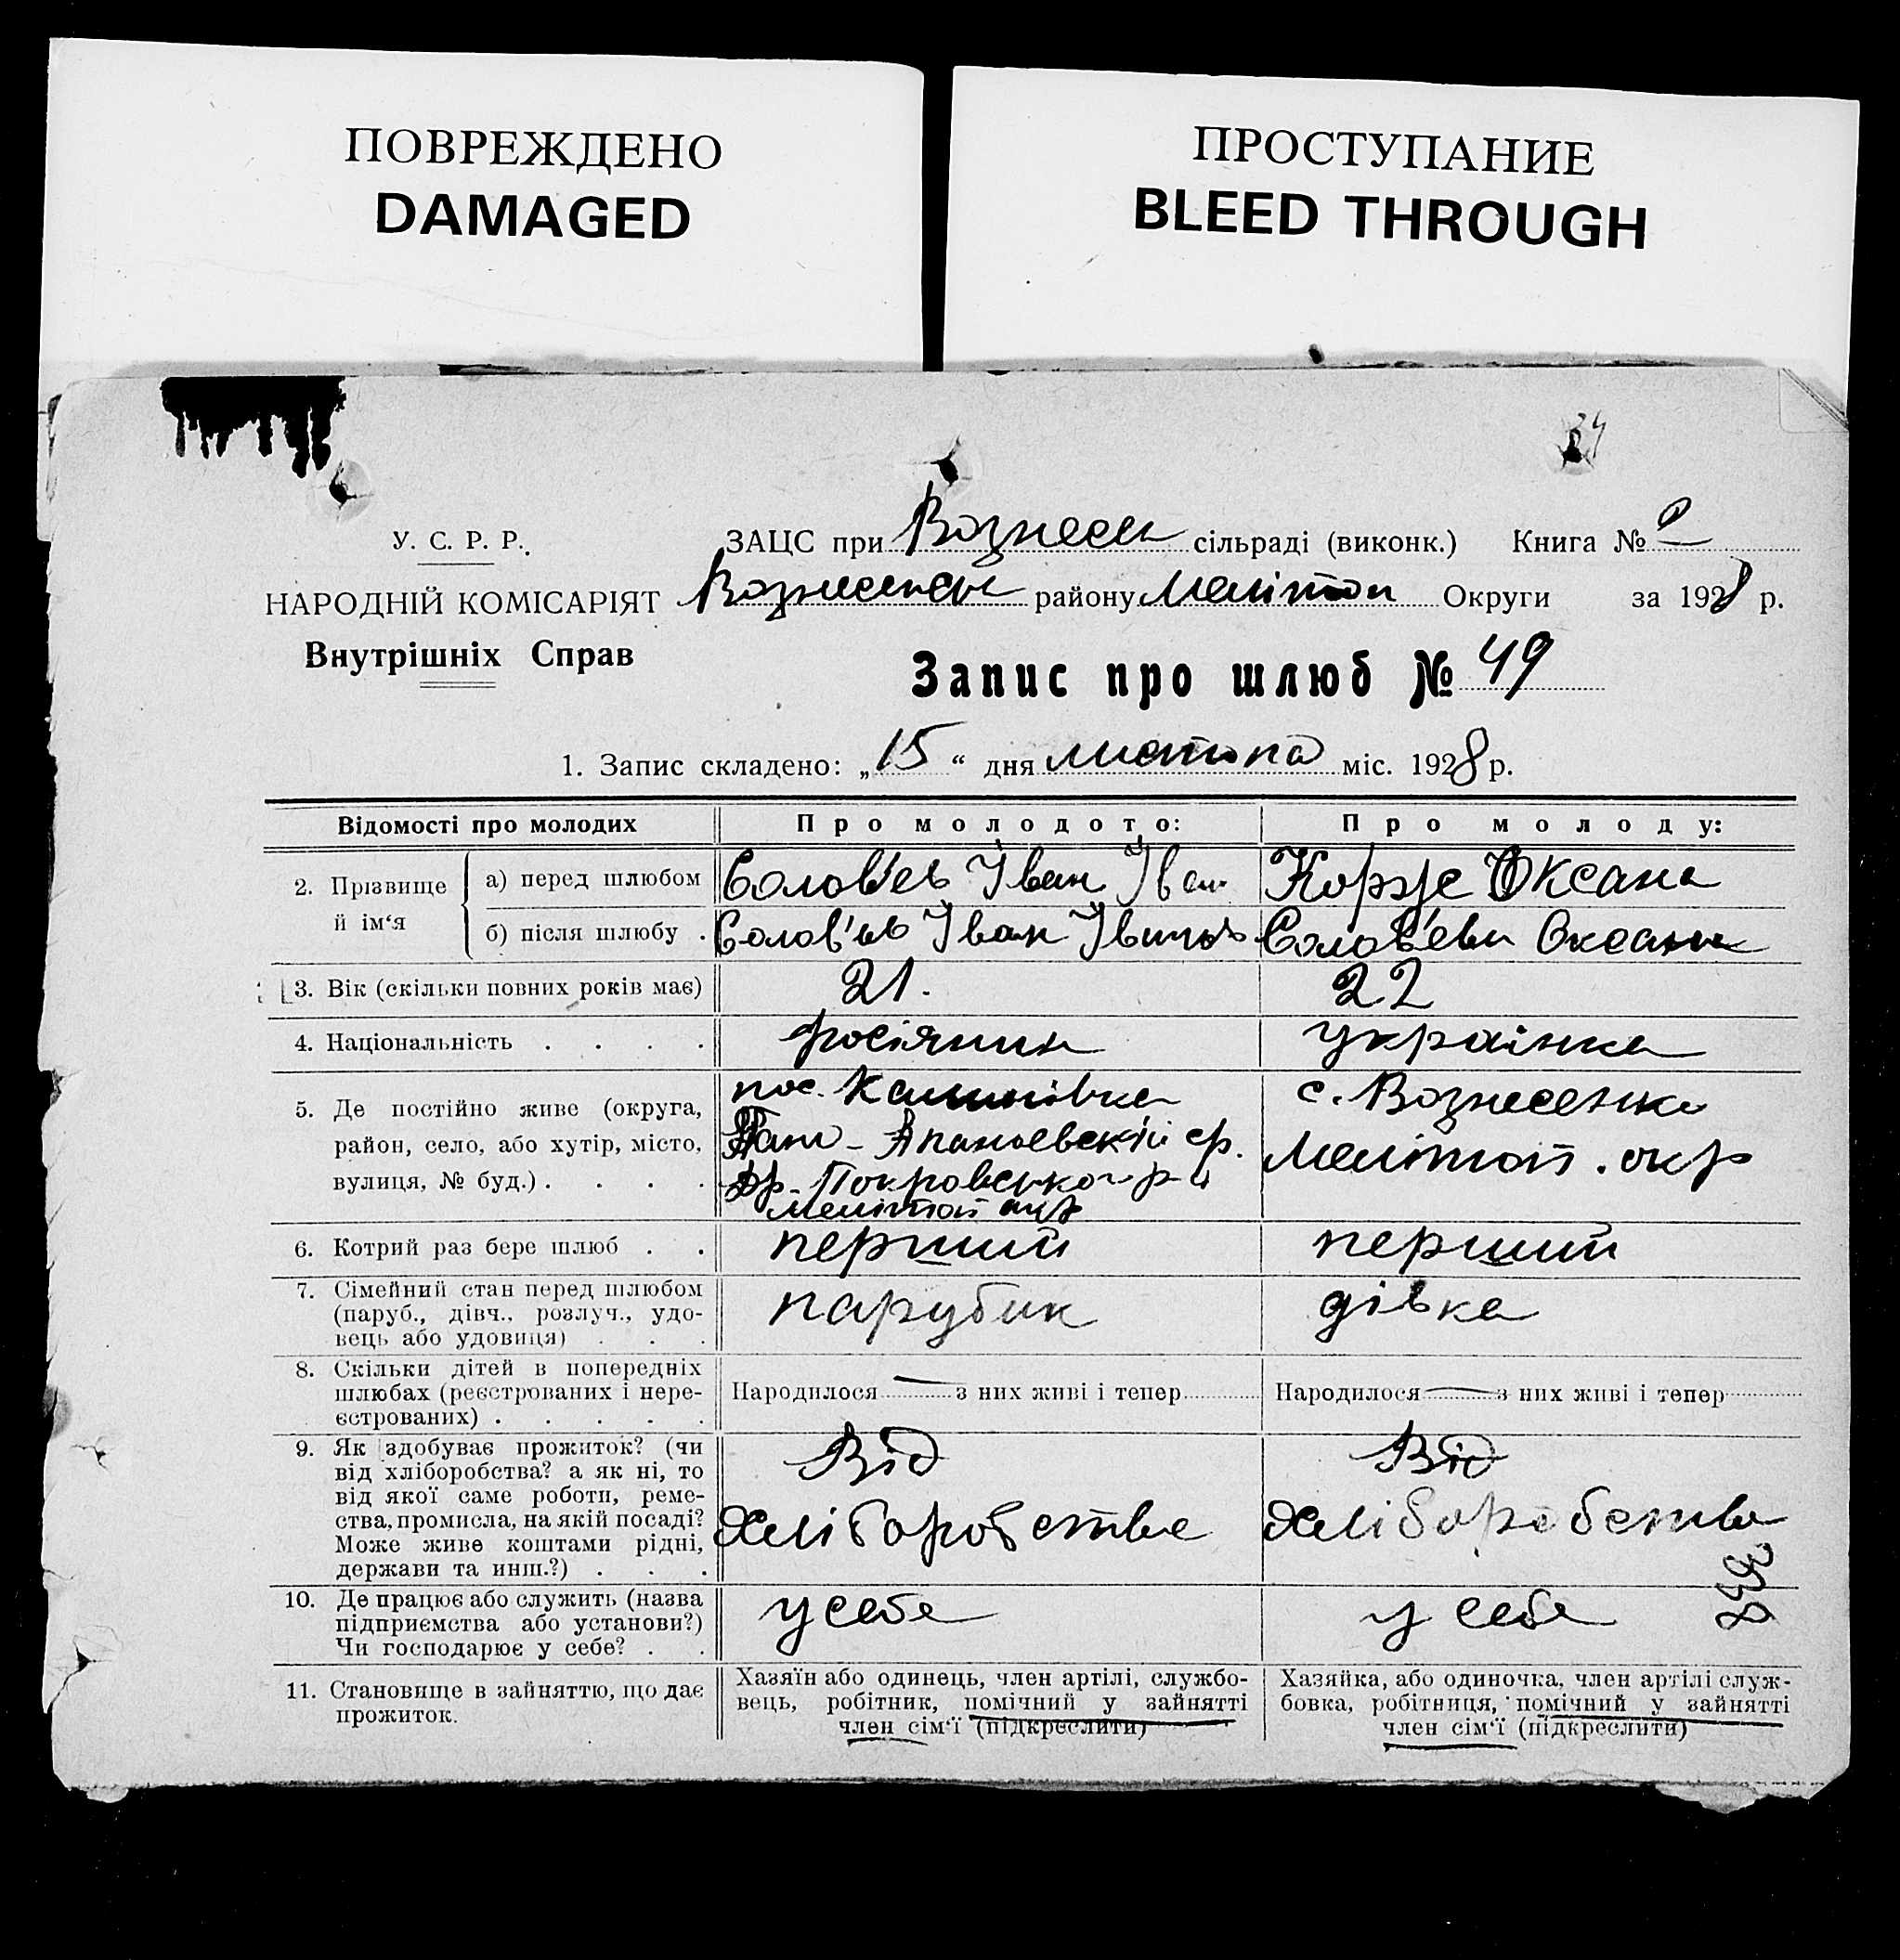 ПОВРЕЖДЕНО
DAMAGED
ПРОСТУПАНИЕ
BLEED THROUGH
У. С. Р. Р.
НАРОДНІЙ КОМІСАРІЯТ
Внутрішніх Справ
ЗАЦС при Вознесен сільраді (виконк.) Книга №
Вознесенськ району Меліпоп Округи за 1928 р.
Запис про шлюб № 49
1. Запис складено: „15“ дня листопа міс. 1928 р.
Відомості про молодих
Про молодого:
Про молоду:
2. Прізвище й ім‘я
а) перед шлюбом
Солов'ев Іван Іван
Корже Оксана
б) після шлюбу .
Солов'ев Іван Іванов
Солов'ева Оксана
3. Вік (скільки повних років має)
21.
22
4. Національність . . . .
росіянин
українка
5. Де постійно живе (округа,
район, село, або хутір, місто,
вулиця, № буд.) . . . .
пос. Калинівка
Апаноевській ср.
Покровського р-н
Мелітоп окр
с. Вознесенка
Мелітоп. окр
6. Котрий раз бере шлюб . .
перший
перший
7. Сімейний стан перед шлюбом
(паруб., дівч., розлуч., удо-
вець або удовиця) . . .
парубик
дівка
8. Скільки дітей в попередніх
шлюбах (реєстрованих і нере-
єстрованих) . . . . .
Народилося — з них живі і тепер
Народилося — з них живі і тепер
9. Як здобуває прожиток? (чи
від хліборобства? а як ні, то
від якої саме роботи, реме-
ства, промисла, на якій посаді?
Може живе коштами рідні,
держави та инш.?) . . .
Від
хліборобства
Від
хліборобства
10. Де працює або служить (назва
підприємства або установи?)
Чи господарює у себе? . .
у себе
у себе
11. Становище в зайняттю, що дає
прожиток.
Хазяїн або одинець, член артілі, службо-
вець, робітник, помічний у зайнятті
член сім‘ї (підкреслити)
Хазяйка, або одиночка, член артілі служ-
бовка, робітниця, помічний у зайнятті
член сім‘ї (підкреслити)